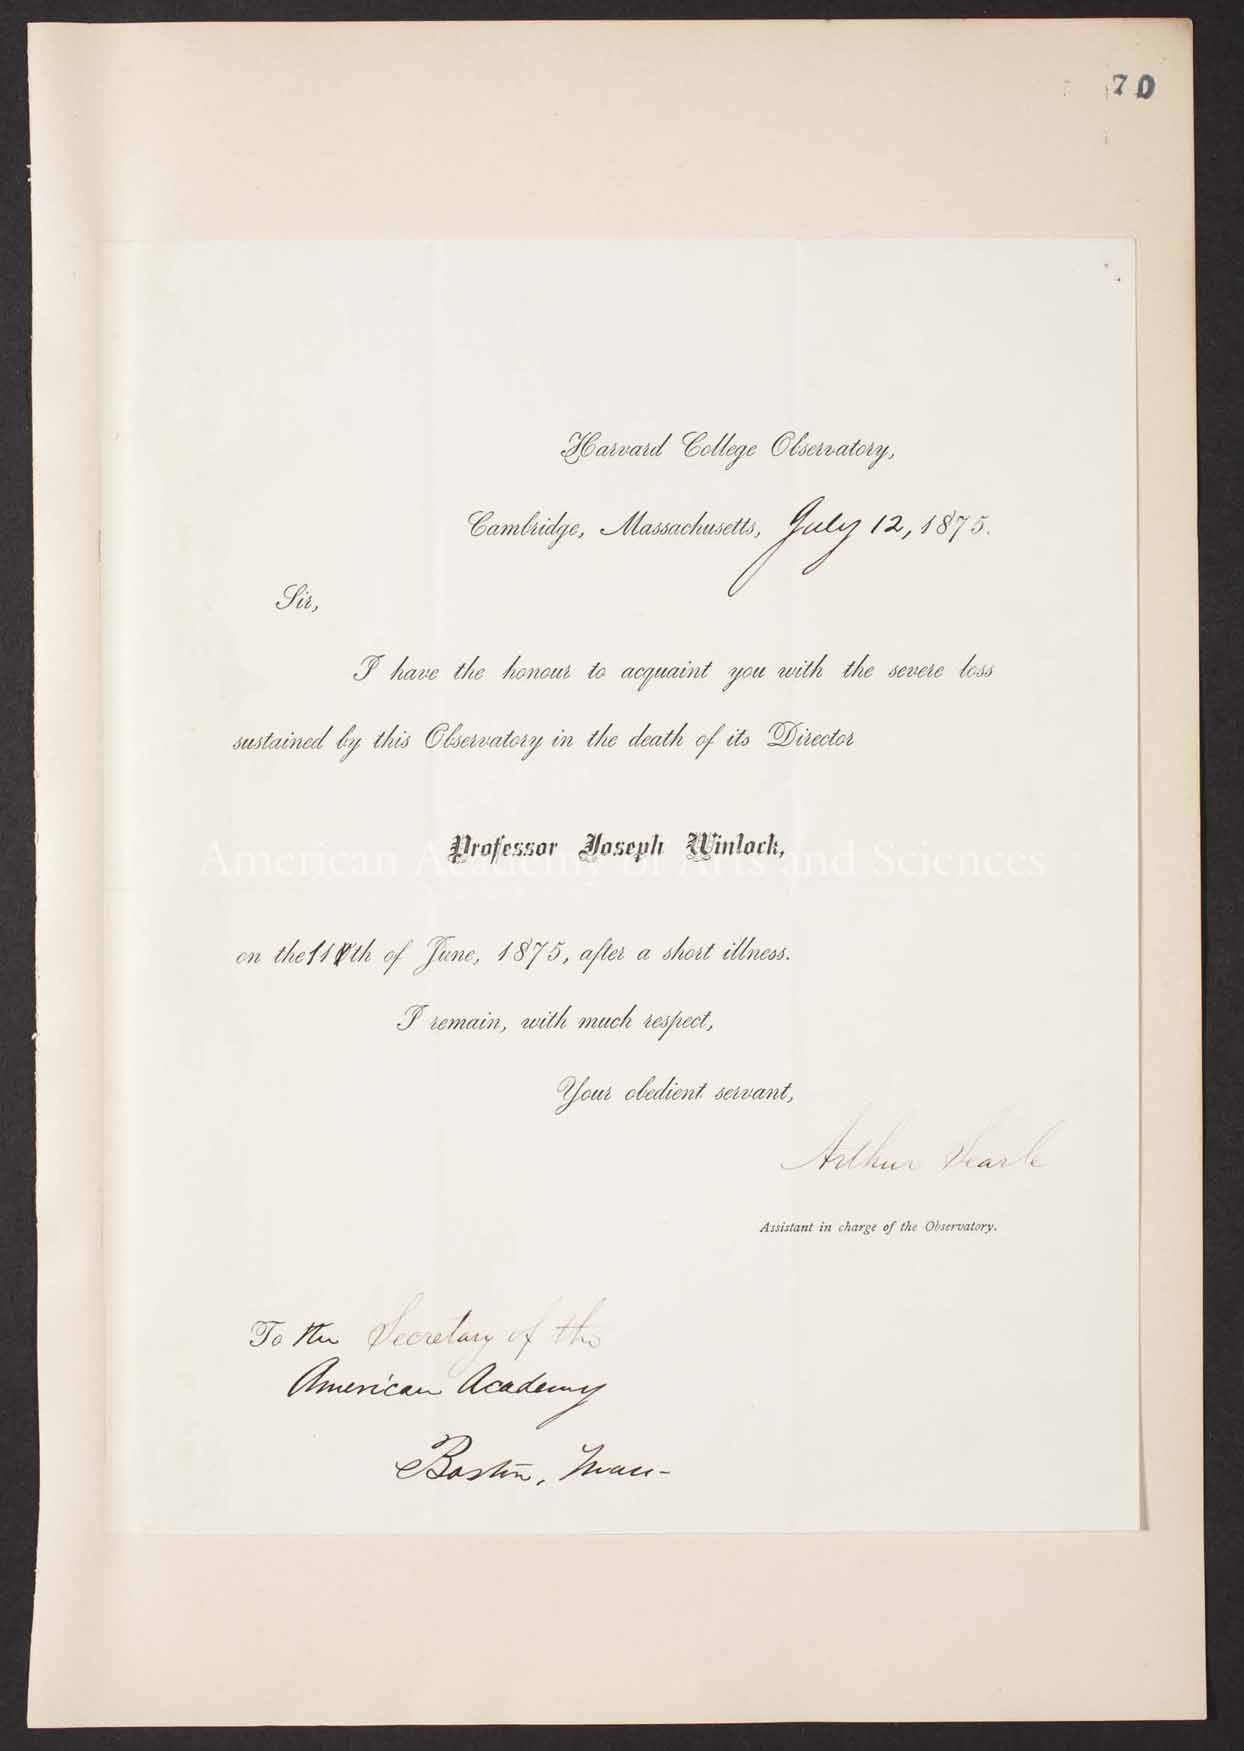 70
Harvard College Observatory,
Cambridge, Massachusetts, July 12, 1875.
Sir,
I have the honour to acquaint you with the severe loss
sustained by this Observatory in the death of its Director
American Academy of Arts and Sciences
Professor Joseph Winlock,
on the 11th of June, 1875, after a short illness.
I remain, with much respect,
Your obedient servant,
Arthur Searle
Assistant in charge of the Observatory.
To the Secretary of the
American Academy
Boston, Mass-